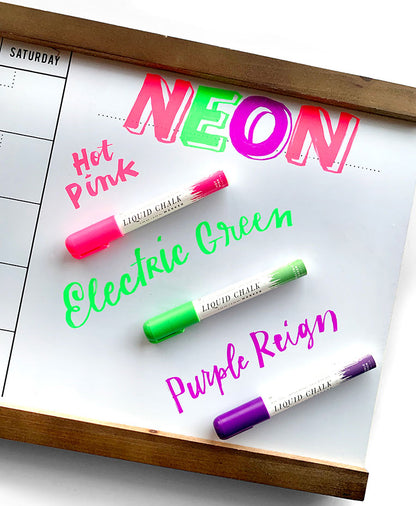 SATURDAY
NEON
Hot
Pink
LIQUID CHALK
MARKER
Electric Green
LIQUID CHALK
MARKER
Purple Reign
LIQUID CHALK
MARKER